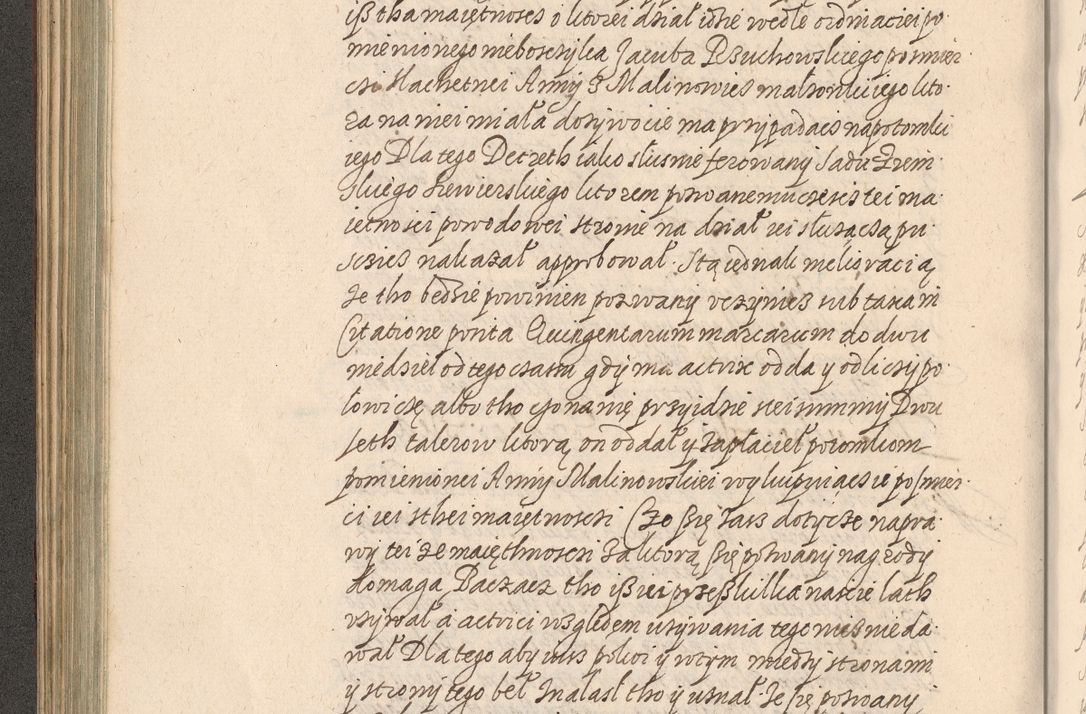 iß tha maiętnosc o ktorei dział idzie wedle ordinaciei po
mienionego nieboszczyka Jacuba Psuchowskiego po smier
czi Slachetnei Anny z Malinowic małzonki iego kto
ra na niei miała dozywocie ma przypadacz na potomki
iego Dla tego Decreth iako slusnie ferowany Sadu Zÿem
skiego Siewierskiego ktorem pozwanemu czesc tei ma
ietnosci powodowei stronie na dział iei słuzącza pu
scicz nakazał approbował. Stą iednak melioracią
że tho będzie powinien pozwany vczynicz sub taxa in
Citatione posita Quingentarum marcarum do dwu
niedziel od tego czassu gdy ma actrix odda y odliczy po
lowiczę albo tho czo na nię przyidzie stei summy Dwu
seth talerow ktorą on oddał y zapłacieł potomkom
pomienionei Anny Malinowskiei wykupuiącz ie po smier
ci iei sthei maiętnosci Czo się zasz dotycze napra
wy tei ze maięthnosci za ktorą się pozwany nagrody
domaga Baczacz tho iż iei przeß kilka nascie lath
vzywał a actrici wzgledem uzywania tego nic nie da
wał Dla tego aby iusz pokoi y wtym miedzy stronami
y strony tego beł Znalasl tho y uznał Ze się pozwany